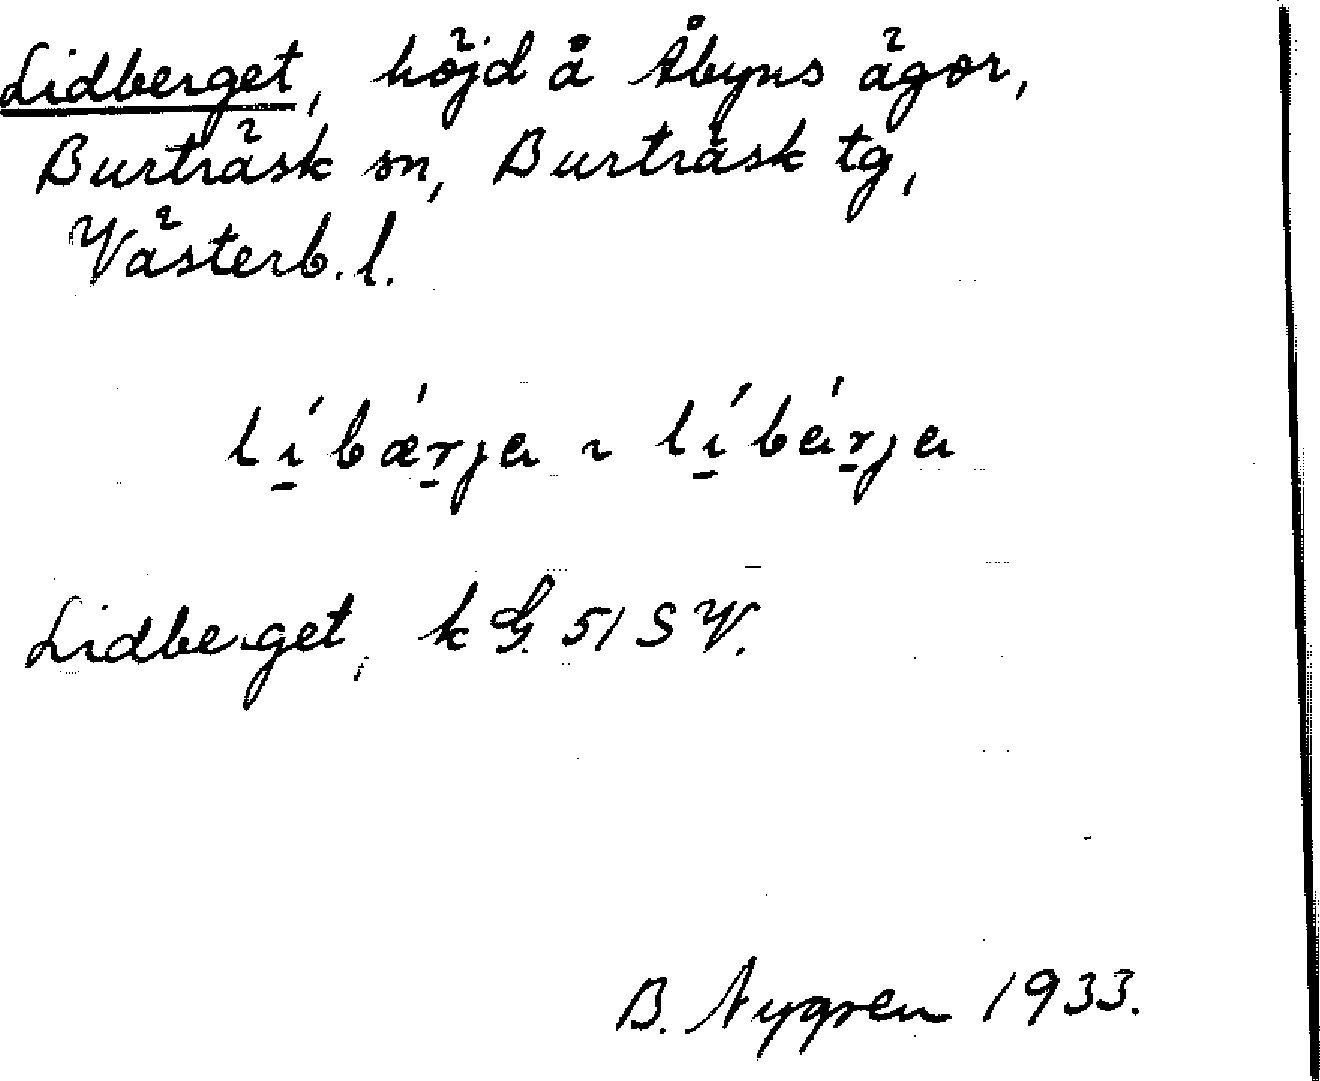 Lidberget, höjd å Åbyns ägor,
Burträsk sn, Burträsk tg,
Västerb. l.
lí̱bǽṟja ~ lí̱báṟja
Lidberget, k G. 51 S V.
B. Nygren 1933.